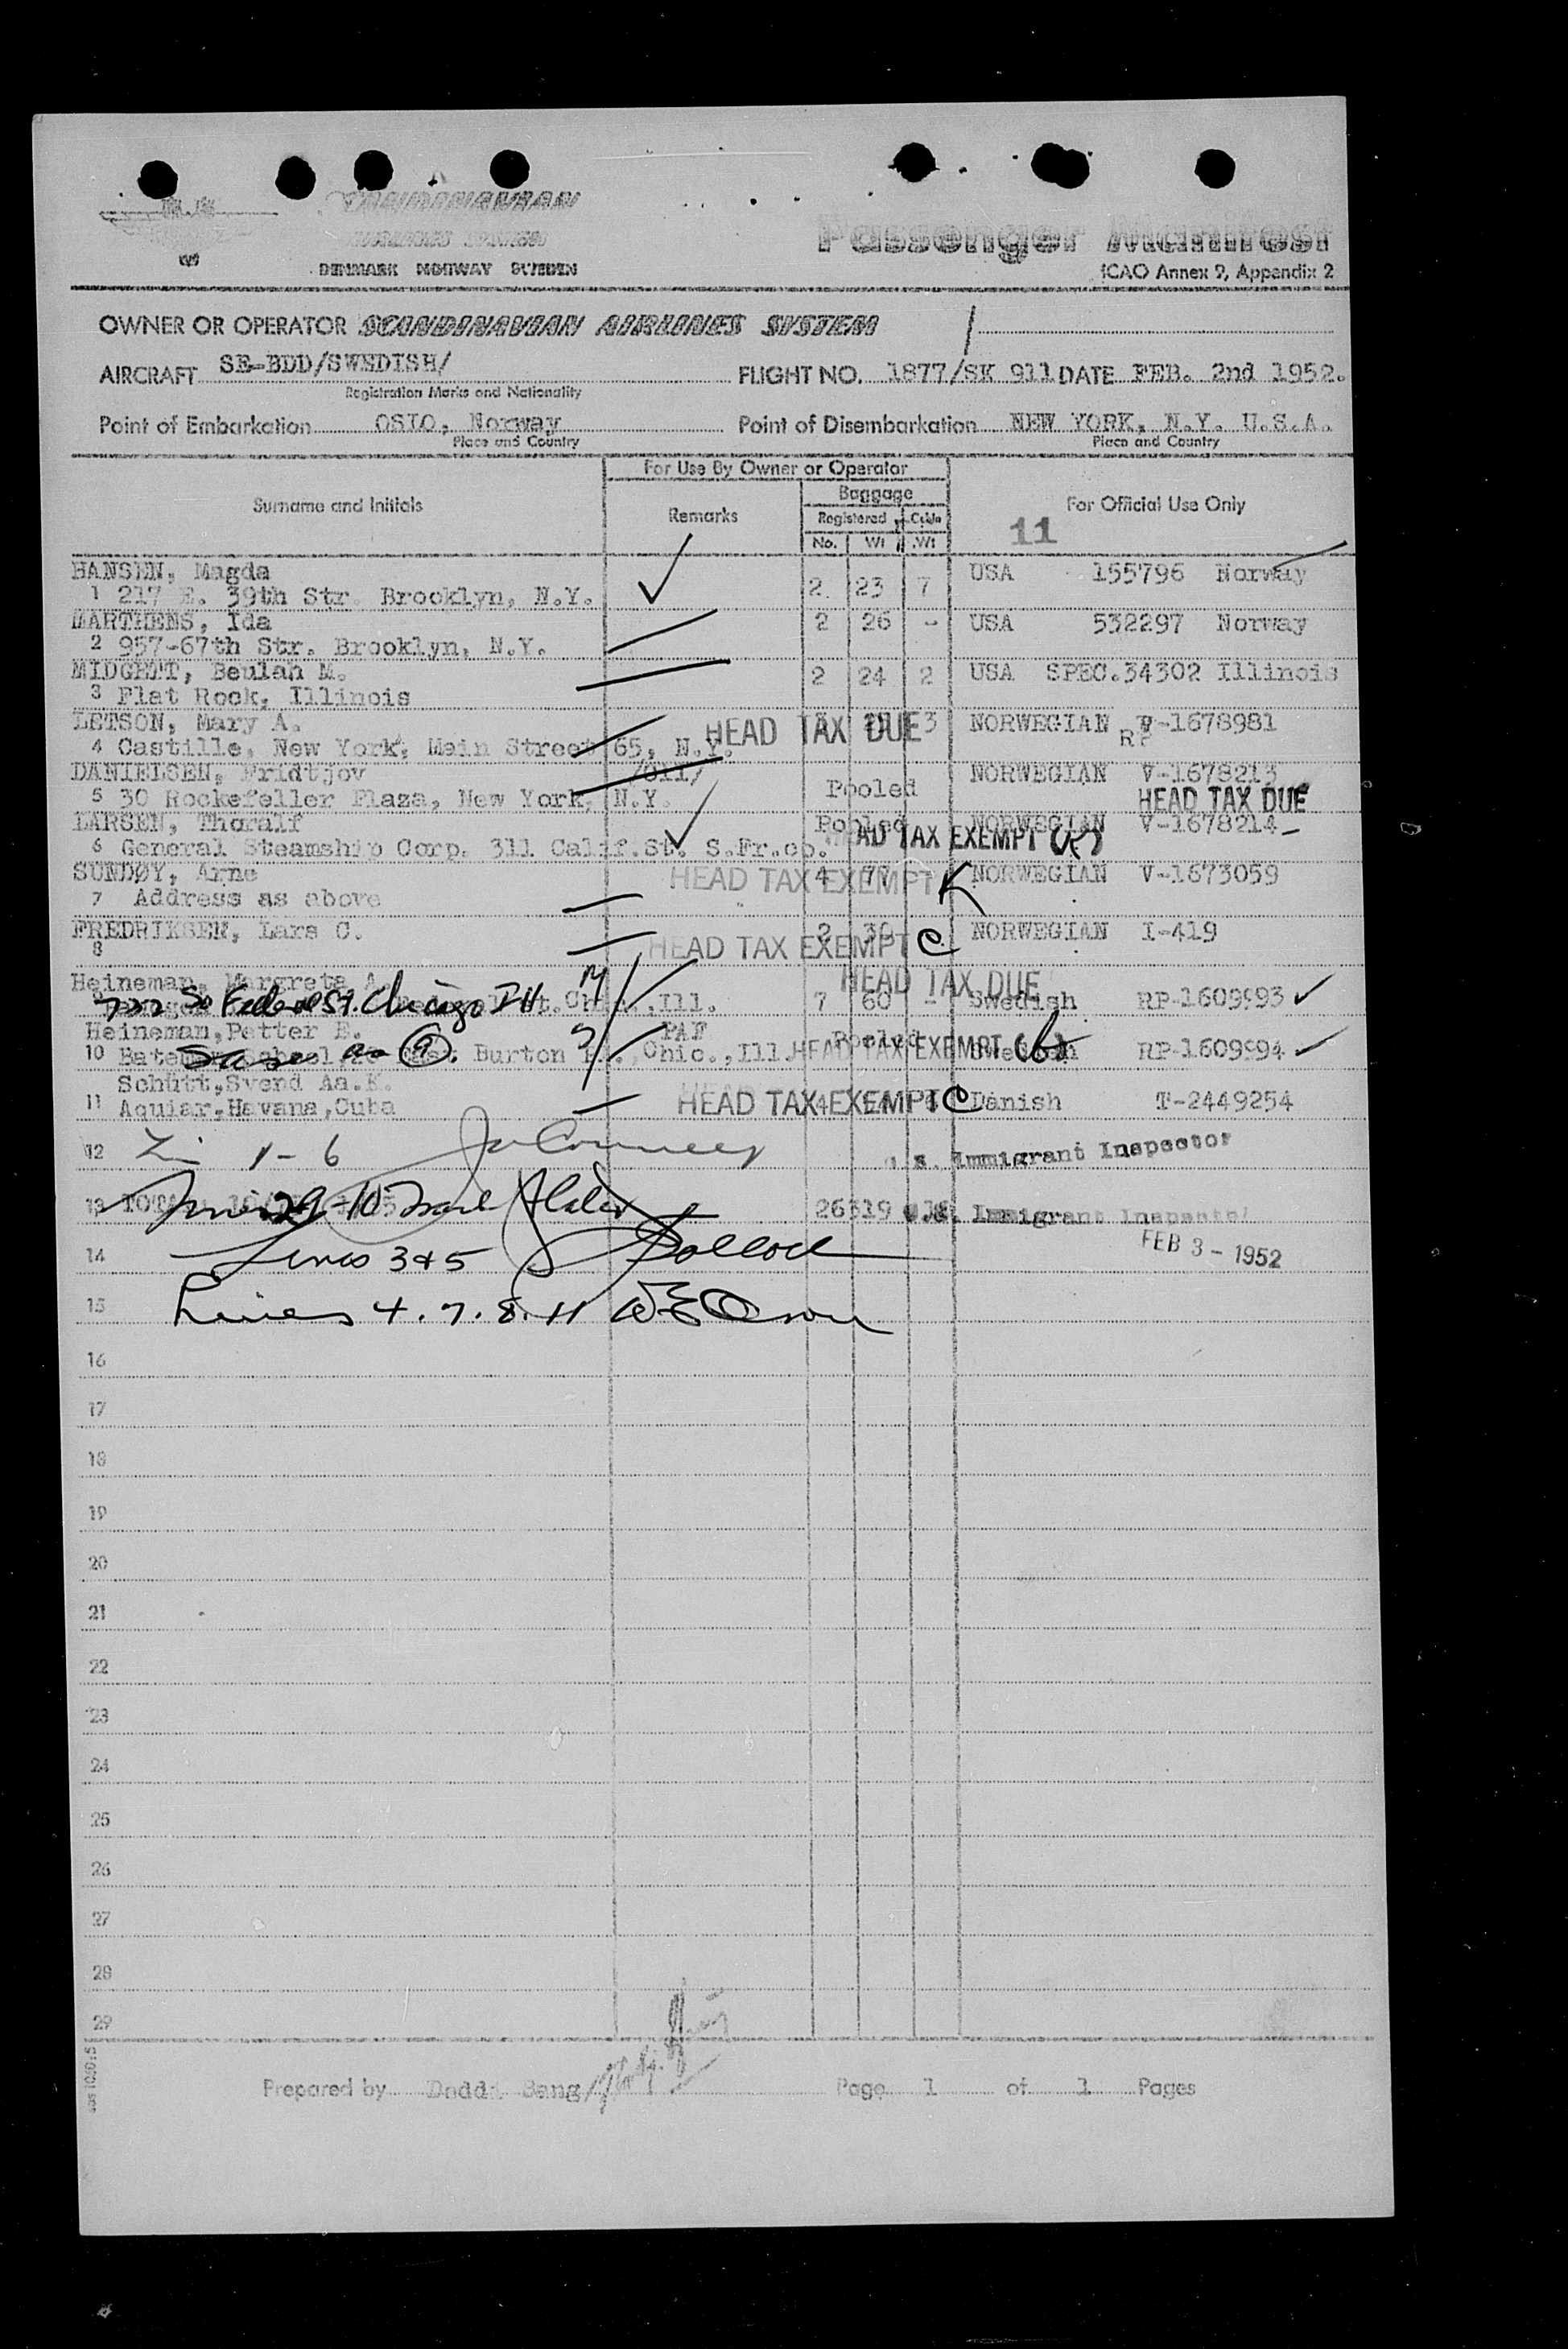 SCANDINAVIAN
AIRLINES SYSTEM
DENMARK NORWAY SWEDEN
Passenger Manifest
ICAO Annex 9, Appendix 2
OWNER OR OPERATOR SCANDINAVIAN AIRLINES SYSTEM
AIRCRAFT SE-BDD/SWEDISH/ FLIGHT NO. 1877/SK 911 DATE FEB. 2nd 1952.
Registration Marks and Nationality
Point of Embarkation OSLO, Norway Point of Disembarkation NEW YORK, N.Y. U.S.A.
Place and Country Place and Country
For Use By Owner or Operator
Surname and Initials Remarks Baggage For Official Use Only
Registered
No. Wt Wt 11
HANSEN, Magda USA 155796 Norway
1 217 E. 39th Str. Brooklyn, N.Y. 2 23 7
MARTHENS, Ida 2 26 - USA 532297 Norway
2 957-67th Str. Brooklyn, N.Y.
MIDGETT, Beulah M. 2 24 2 USA SPEC.34302 Illinois
3 Flat Rock, Illinois
LETSON, Mary A. HEAD TAX DUE 3 NORWEGIAN V-1678981
RP
4 Castille, New York, Main Street 65, N.Y.
DANIELSEN, Fridtjov NORWEGIAN V-1678213
5 30 Rockefeller Plaza, New York, N.Y. Pooled HEAD TAX DUE
LARSEN, Thoralf Pooled NORWEGIAN V-1678214
6 General Steamship Corp. 311 Calif.St. S.Fr.co. HEAD TAX EXEMPT
SUNDØY, Arne HEAD TAX EXEMPT 4 77 NORWEGIAN V-1673059
7 Address as above
FREDRIKSEN, Lars C. 2 30 NORWEGIAN I-419
8 HEAD TAX EXEMPT C
Heineman, Margreta A. HEAD TAX DUE
722 So Federal St. Chicago Ill Ill. 7 60 - Swedish RP-1609993
Heineman, Petter E. Pooled
10 Same as 9 Burton Chic., Ill. HEAD TAX EXEMPT Swedish RP-1609994
Schütt, Svend Aa.K.
11 Aguiar, Havana, Cuba HEAD TAX EXEMPT C Danish T-2449254
12 1-6 U.S. Immigrant Inspector
13 TOTAL 26 319 U.S. Immigrant Inspector
FEB 3 - 1952
14 Lines 3+5 Pollock
15 Lines 4.7.8.11
16
17
18
19
20
21
22
23
24
25
26
27
28
29
Prepared by Bang/ Page 1 of 1 Pages